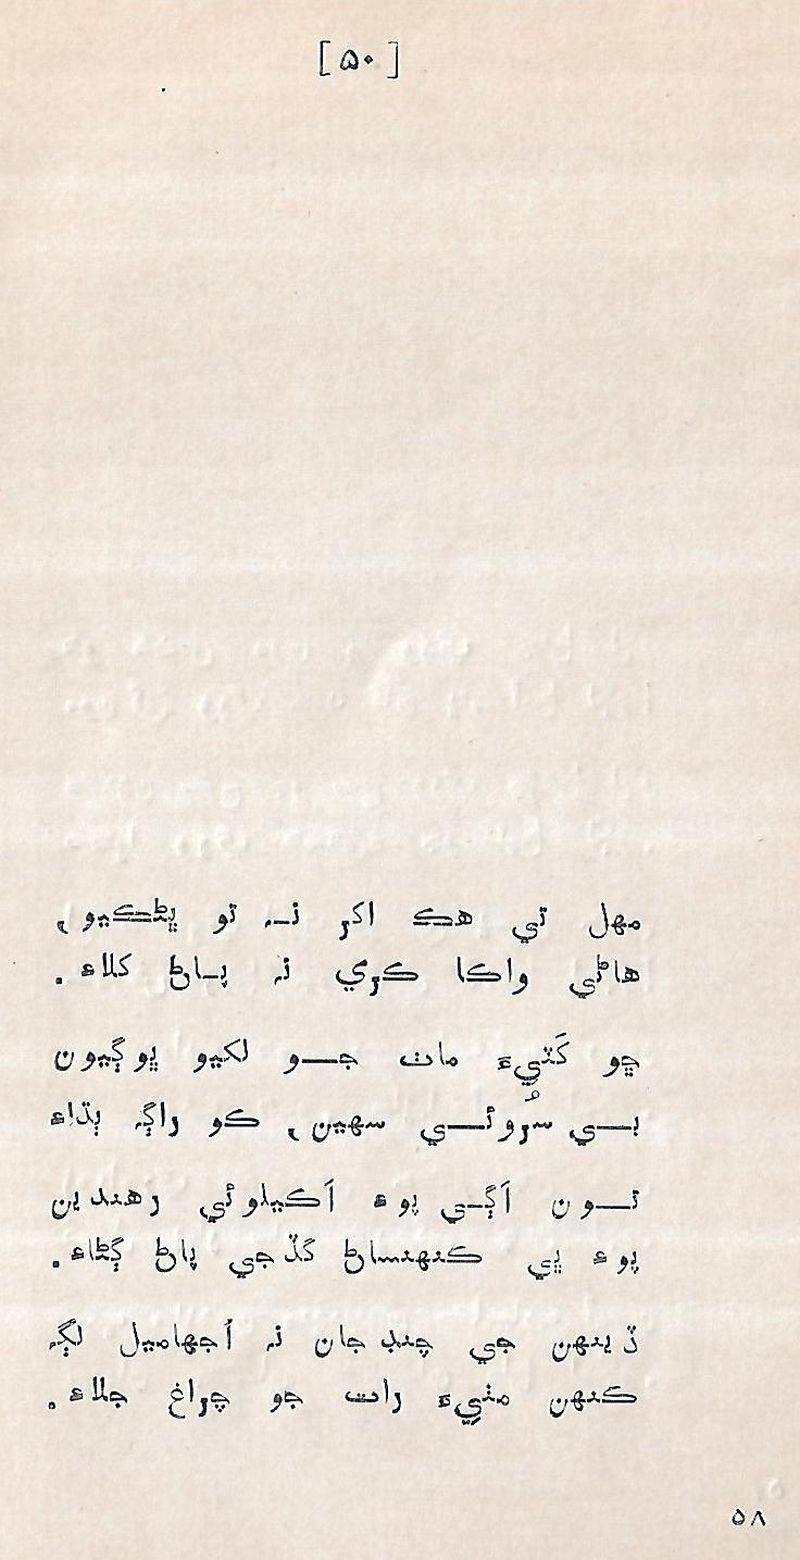 [ ۵۰ ]
مهل تي هڪ اکر نہ تو ڀڻڪيو،
هاڻي واڪا ڪري نہ پاڻ کلاءِ.
ڇو کَٽيءَ مات جو لکيو ڀوڳيون
بي سُروئي سهين، ڪو راڳہ ٻڌاءِ
تون اَڳي پوءِ اَڪيلوئي رهندين
پوءِ ڀي ڪنهنساڻ گڏجي پاڻ ڳڻاءِ.
ڏينهن جي چنڊ جان نہ اُجهاميل لڳہ
ڪنهن مٺيءَ رات جو چراغ جلاءِ.
۵۸